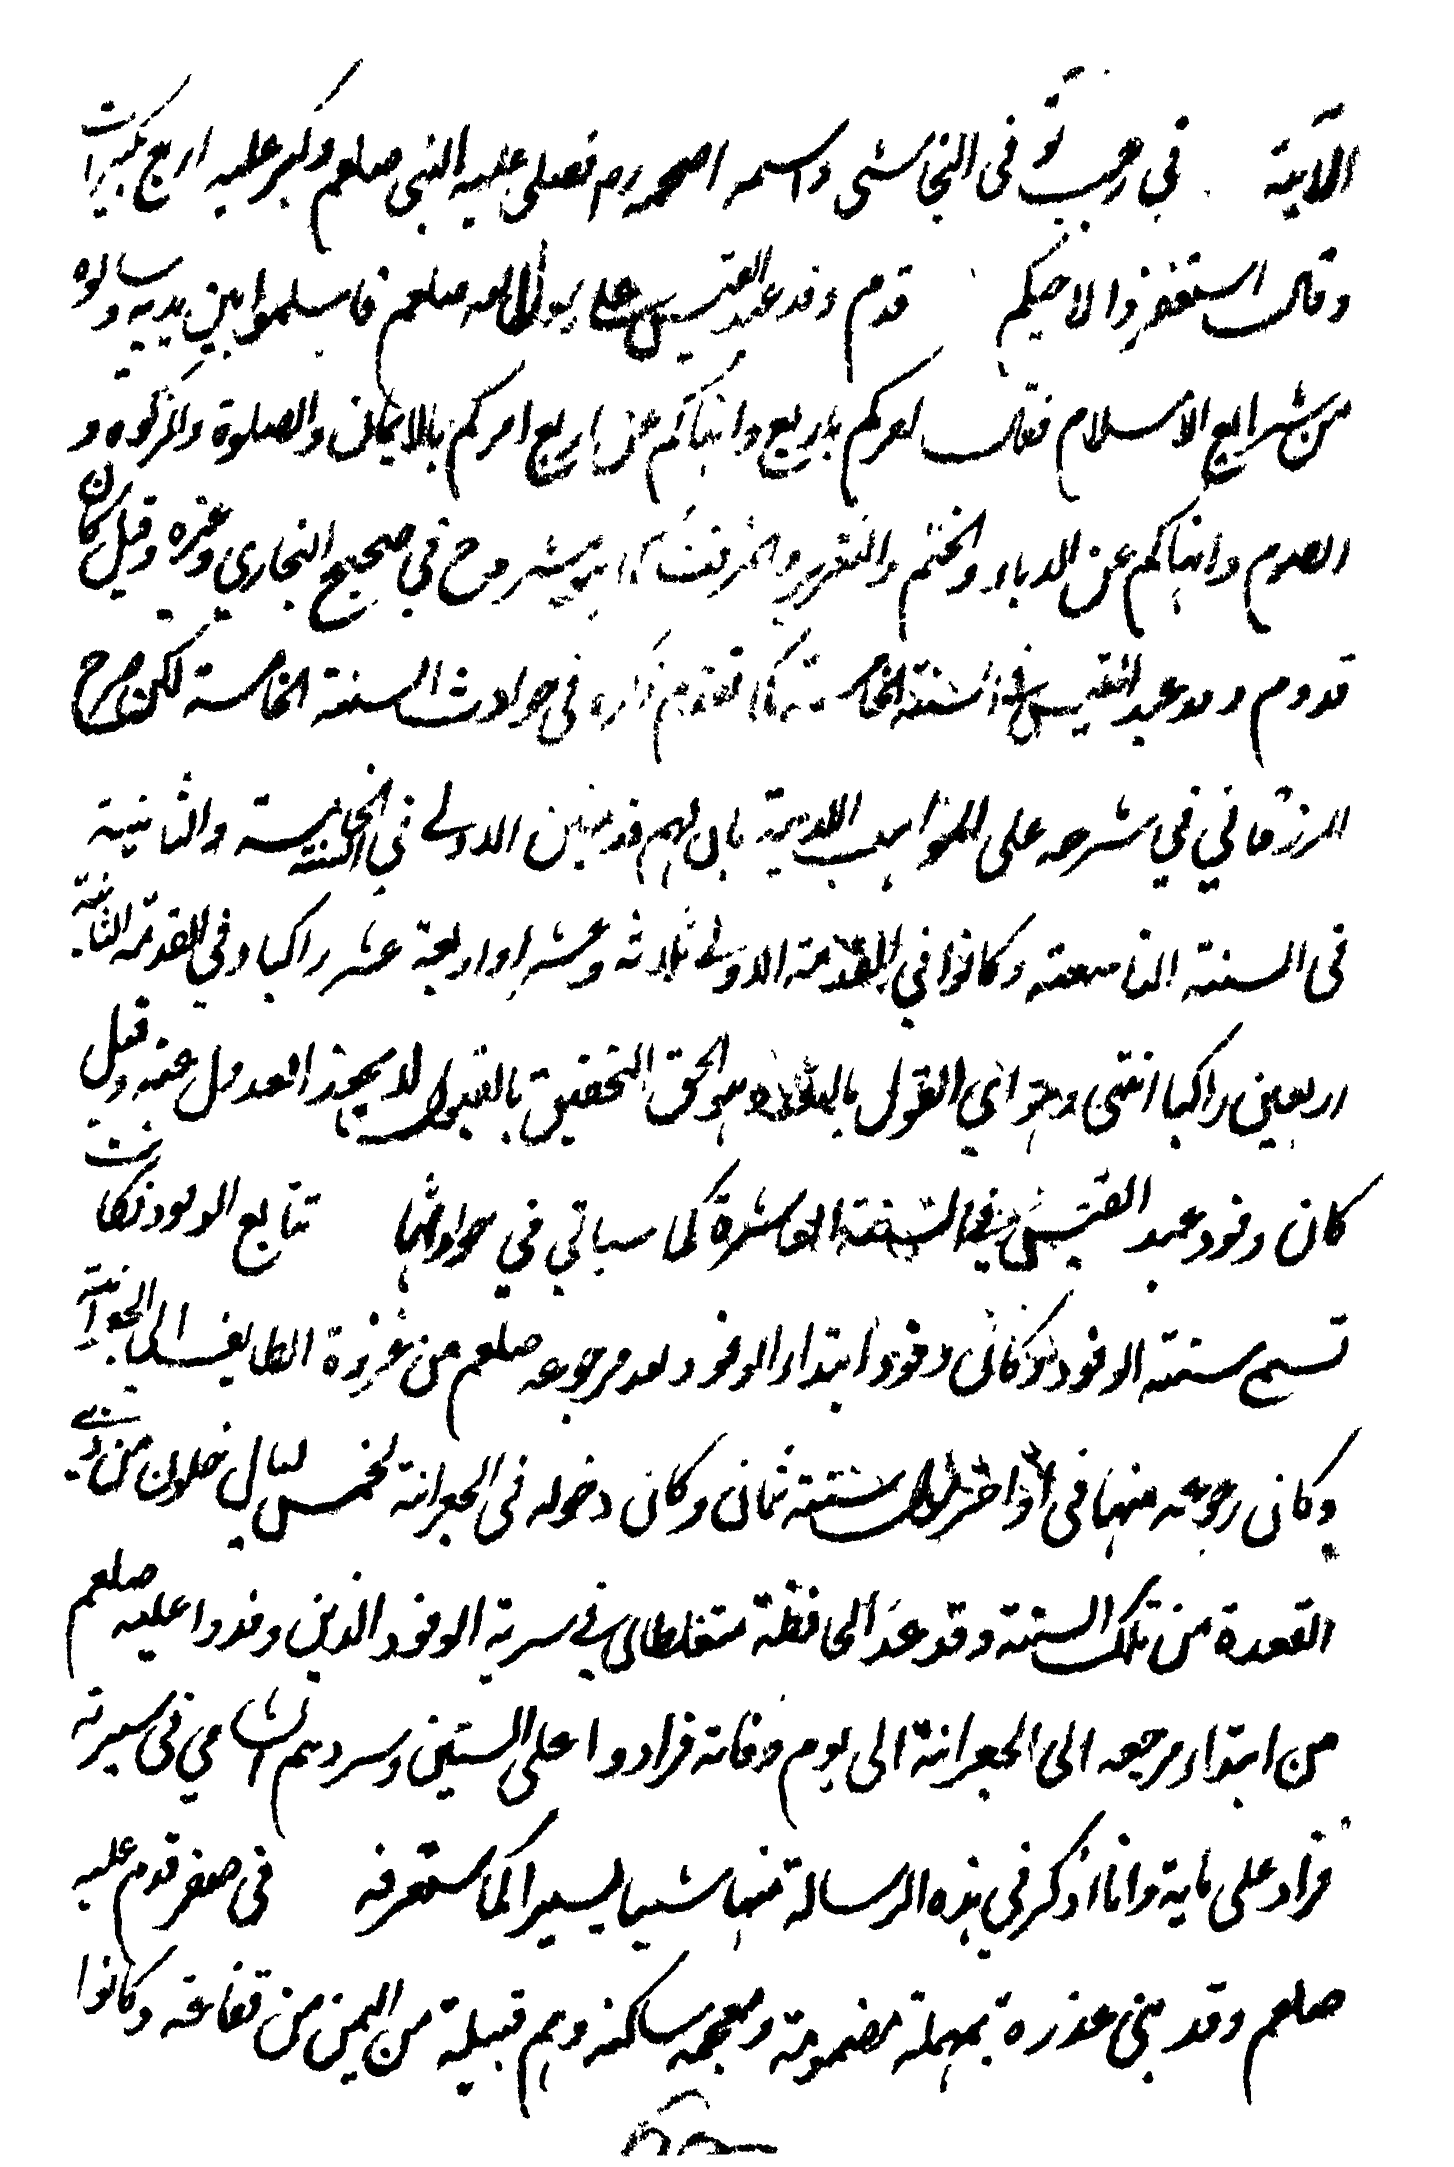 الآتية في رجب توفى النجاشى واسمه اصحمه رم فصلى عليه النبى صلعم وكبر عليه اربع تكبيرات
وقال استغفروا لاخيكم قدم وفد عبد القيس على رسول الله صلعم فاسلموا بين يديه وسالوه
من شرايع الاسلام فقال امركم باربع وانهاكم عن اربع امركم بالايمان والصلوة والزكوه و
الصوم وانهاكم عن الدباء والحنتم والنقير والمزفت كما هو مشروح في صحيح البخاري وغيره وقيل كان
قدوم وفد عبد القيس في السنة الخامسة كما تقدم ذكره في حوادث السنة الخامسة لكن صرح
الزرقاني في شرحه على المواهب اللدنية بان لهم قدمتين الاولى في الخامسة والثانية
فى السنة التاسعته وكانوا في القدمة الاولى ثلاثة وعشر اواربعة عشر راكبا وفي القدمة الثانية
اربعين راكبا انتهى وهو اي القول بالتعدد هو الحق التحقيق بالقبول لا يجوز العدول عنه وقيل
كان وفود عبد القيس في السنة العاشرة كما سياتي في حوادثها تتابع الوفود فكانت
تسمى سنته الوفود وكانى وفود ابتداء الوفود بعد مرجوعه صلعم من غزوة الطايف الى الجعرانة
وكانى رجوعه منها فى اواخر شوال سنته ثمان وكان دخوله فى الجعرانة لخمس ليال خلون من ذى
القعدة من تلك السنته وقد عد الحافظة متغلطاى في سرية الوفود الذين وفدوا عليه صلعم
من ابتداء مرجعه الى الجعرانة الى يوم وفاته فزادوا على الستين وسردهم الشامي فى سيرته
فزاد على ماية وانا اذكر في هذه الرسالة منها شييا يسيرا كما ستعرفه فى صفر قدم عليه
صلعم وفد بني عذرة بمهملة مضمومة ومعجمه ساكنه وهم قبيلة من اليمن من قضاعة وكانوا